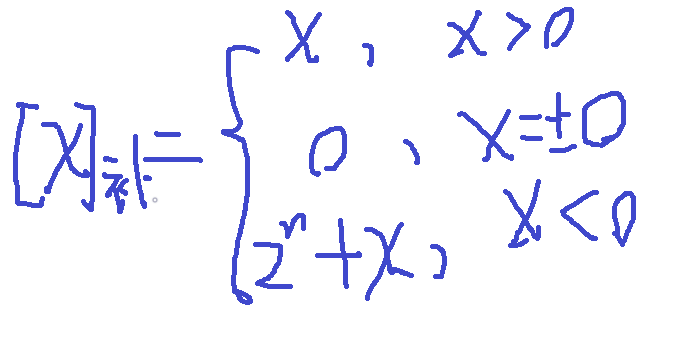 [x]补 = { x , x > 0
0 , x = ±0
2ⁿ + x , x < 0